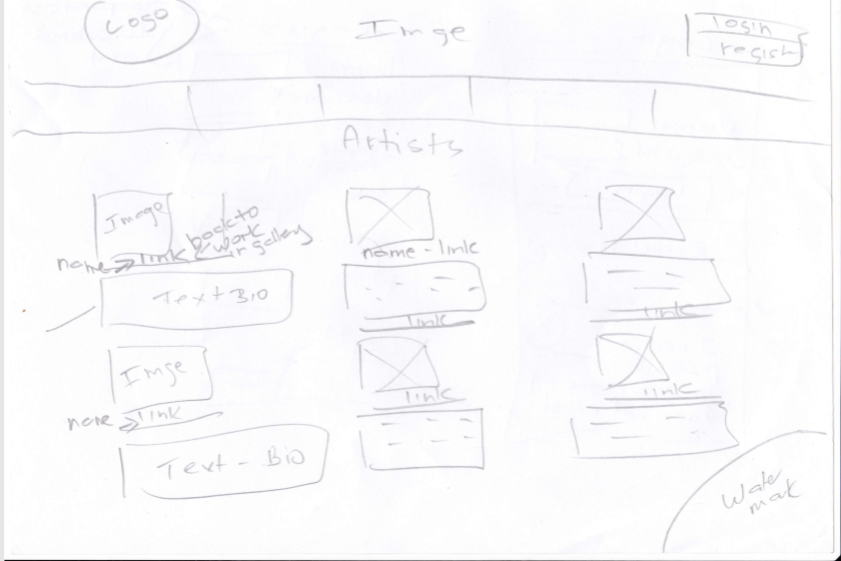 Logo
Imge
login
regish
Artists
Image
name → link
back to
work
r gallery
Text Bio
name - link
link
link
Imge
name → link
Text - Bio
link
link
Water
mark